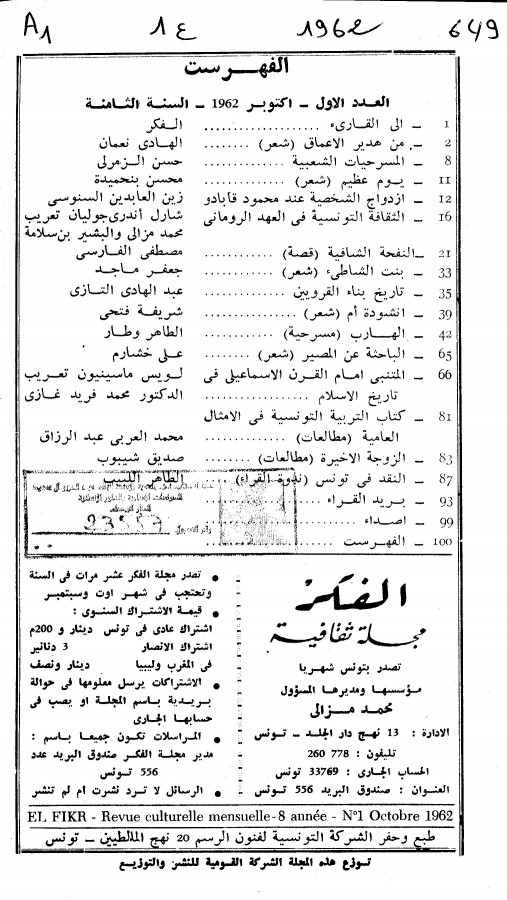 A1 1ع 1962 649
الفهرست
العدد الاول - اكتوبر 1962 - السنة الثامنة
1 - الى القارىء .................... الفكر
2 - من هدير الاعماق (شعر) ........ الهادى نعمان
8 - المسرحيات الشعبية ............. حسن الزمرلى
11 - يوم عظيم (شعر) .............. محسن بنحميدة
12 - ازدواج الشخصية عند محمود قابادو زين العابدين السنوسى
16 - الثقافة التونسية فى العهد الرومانى شارل أندرى جوليان تعريب
محمد مزالى والبشير بن سلامة
21 - النفحة الشافية (قصة) .......... مصطفى الفارسى
33 - بنت الشاطىء (شعر) .......... جعفر ماجد
35 - تاريخ بناء القرويين ........... عبد الهادى التازى
39 - انشودة أم (شعر) ............. شريفة فتحى
42 - الهارب (مسرحية) ............ الطاهر وطار
65 - الباحثة عن المصير (شعر) ...... على خشارم
66 - المتنبى امام القرن الاسماعيلى فى لويس ماسينيون تعريب
تاريخ الاسلام ................ الدكتور محمد فريد غازى
81 - كتاب التربية التونسية فى الامثال
العامية (مطالعات) ............ محمد العربى عبد الرزاق
83 - الزوجة الاخيرة (مطالعات) ..... صديق شيبوب
87 - النقد فى تونس (ندوة القراء) .... الطاهر اللبيب
93 - بريد القراء ..................
99 - اصداء ....................
100 - الفهرست ..................
23957
الفكر
مجلة ثقافية
تصدر بتونس شهريا
مؤسسها ومديرها المسؤول
محمد مزالى
الادارة : 13 نهج دار الجلد - تونس
تليفون : 778 260
الحساب الجارى : 33769 تونس
العنوان : صندوق البريد 556 تونس
• تصدر مجلة الفكر عشر مرات فى السنة
وتحتجب فى شهر اوت وسبتمبر
• قيمة الاشتراك السنوى :
اشتراك عادى فى تونس دينار و 200م
اشتراك الانصار 3 دنانير
فى المغرب وليبيا دينار ونصف
• الاشتراكات يرسل معلومها فى حوالة
بريدية باسم المجلة او يصب فى
حسابها الجارى
• المراسلات تكون جميعا باسم :
مدير مجلة الفكر صندوق البريد عدد
556 تونس
• الرسائل لا ترد نشرت ام لم تنشر
EL FIKR - Revue culturelle mensuelle - 8 année - N°1 Octobre 1962
طبع وحفر الشركة التونسية لفنون الرسم 20 نهج المالطيين - تونس
توزع هذه المجلة الشركة القومية للنشر والتوزيع